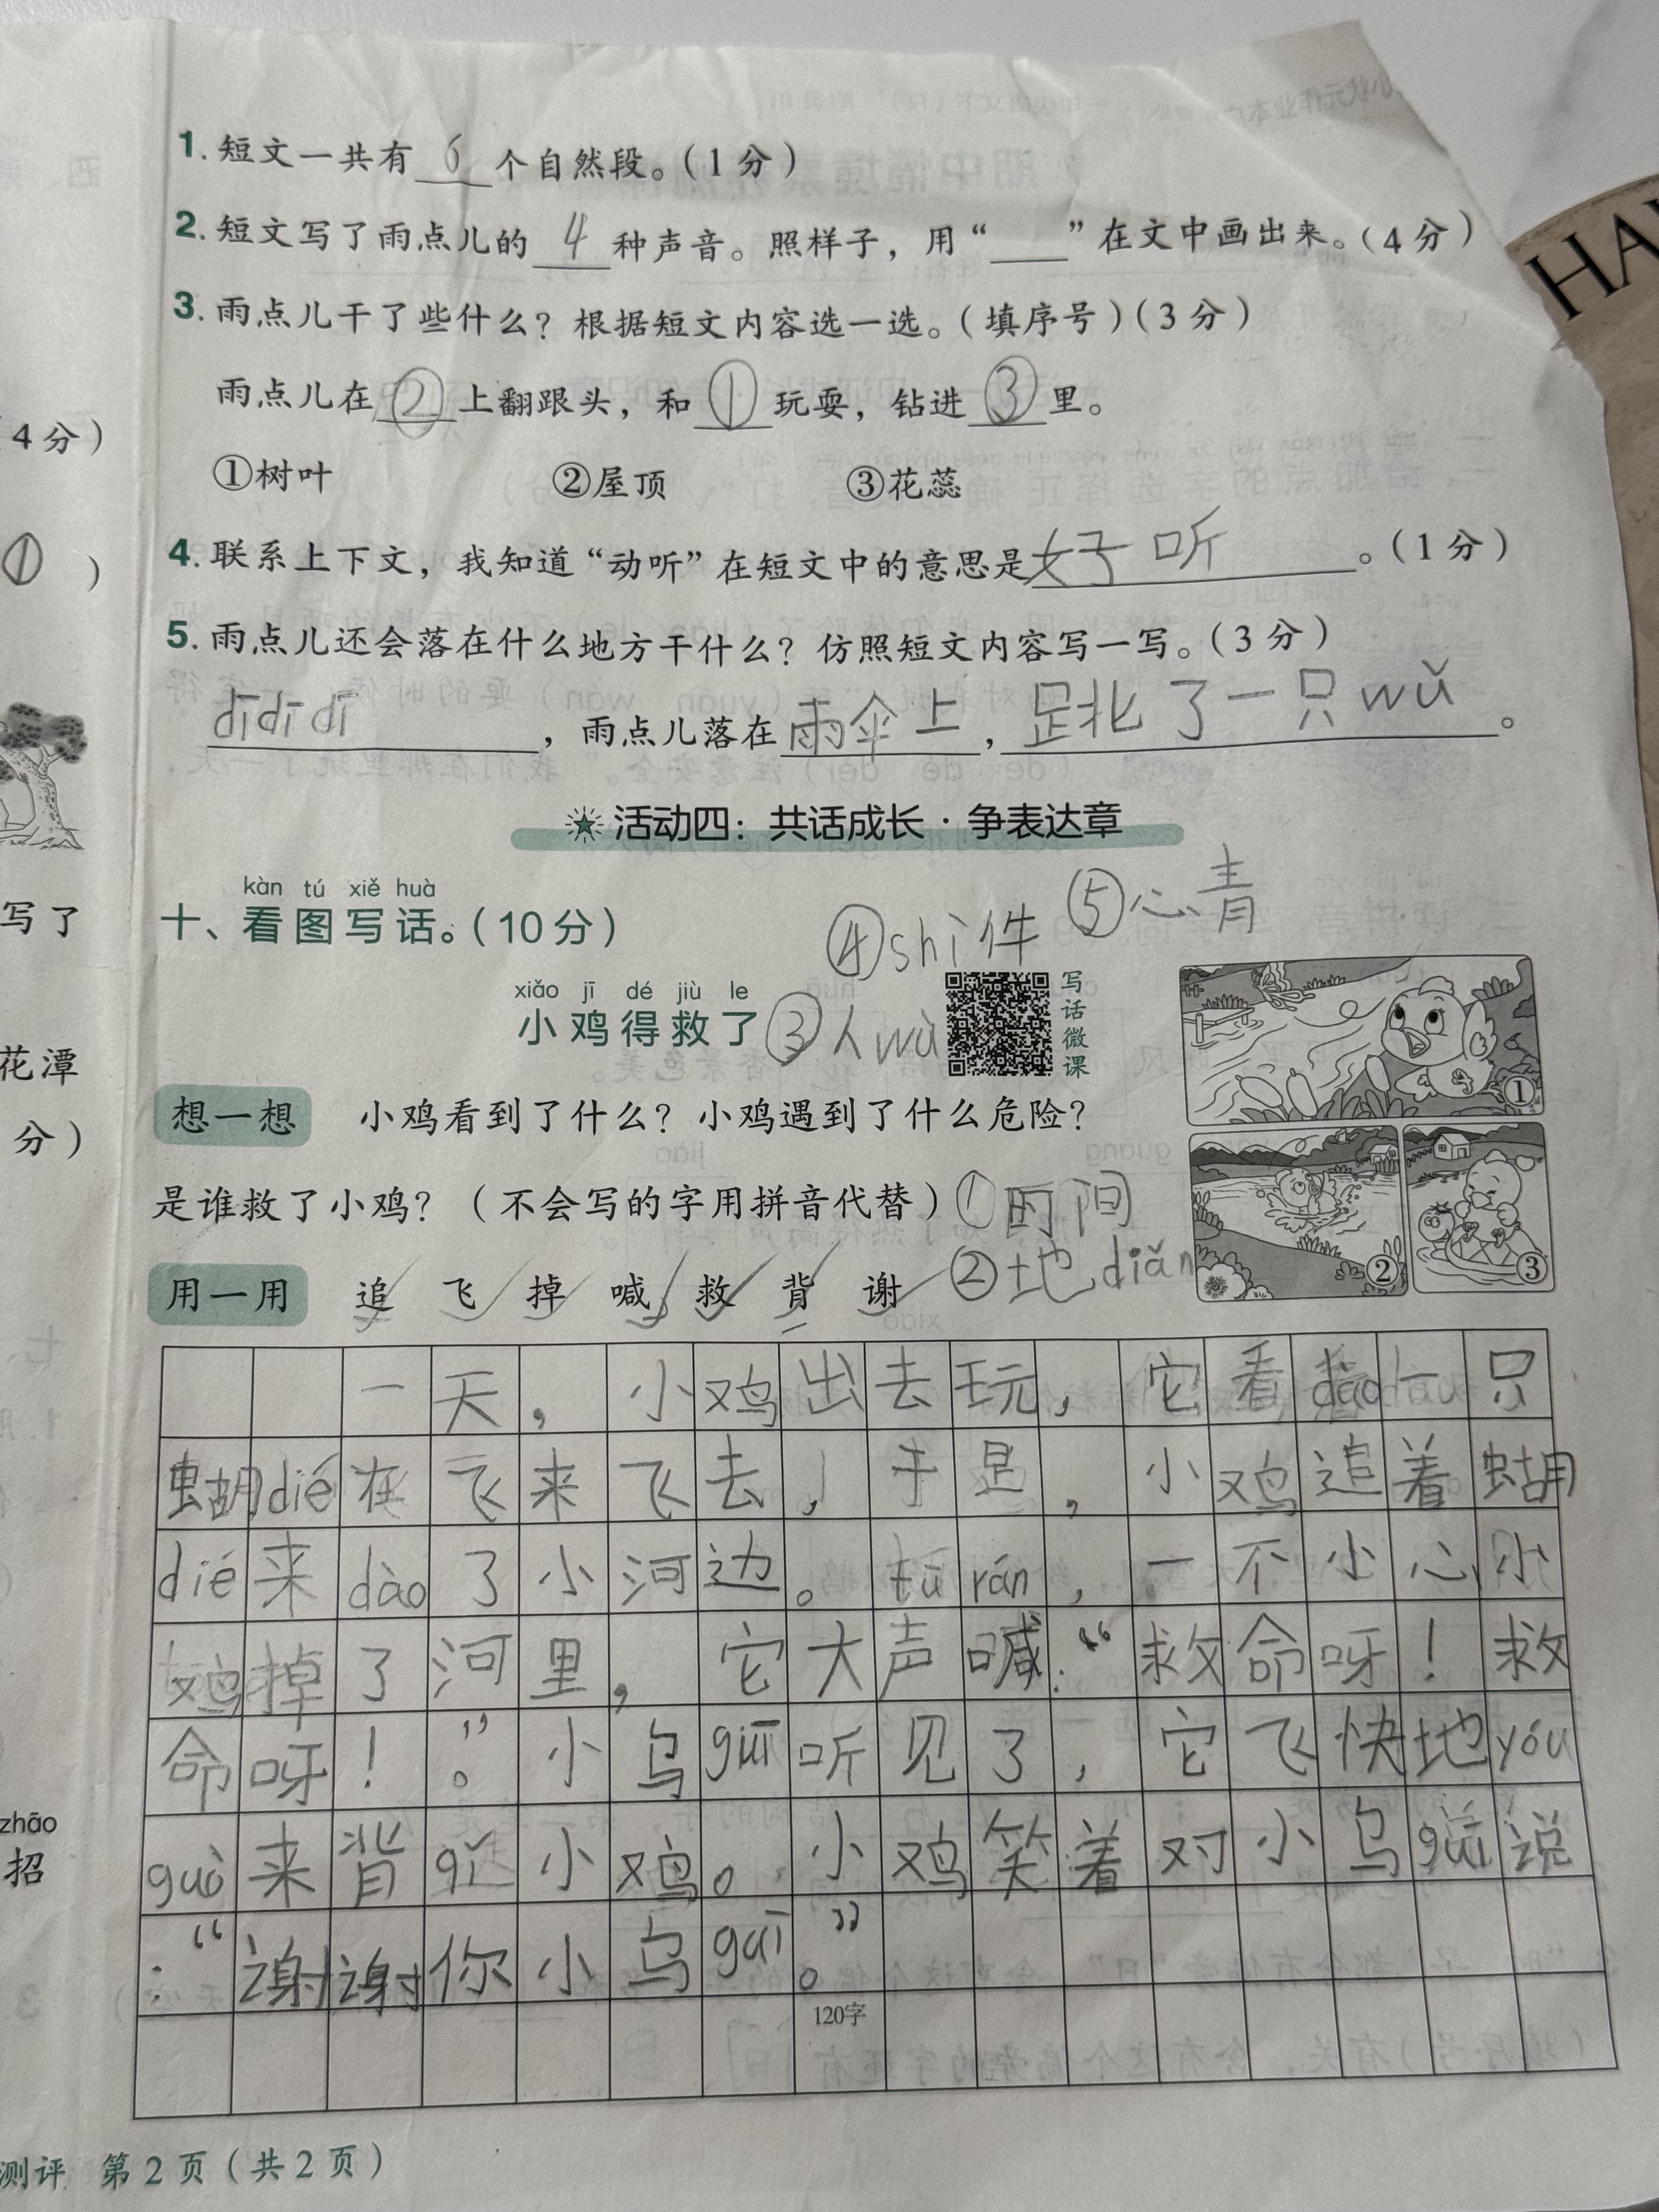 1.短文一共有 6 个自然段。(1分)
2.短文写了雨点儿的 4 种声音。照样子，用“___”在文中画出来。(4分)
3.雨点儿干了些什么？根据短文内容选一选。(填序号)(3分)
雨点儿在 ② 上翻跟头，和 ① 玩耍，钻进 ③ 里。
4分)
①树叶 ②屋顶 ③花蕊
① )
4.联系上下文，我知道“动听”在短文中的意思是好听。(1分)
5.雨点儿还会落在什么地方干什么？仿照短文内容写一写。(3分)
dī dī dī，雨点儿落在雨伞上，跳了一只wǔ。
活动四：共话成长·争表达章
kàn tú xiě huà
十、看图写话。(10分)
写了
④shì件 ⑤心青
xiǎo jī dé jiù le
小鸡得救了
③人wù
写话微课
花潭
想一想 小鸡看到了什么？小鸡遇到了什么危险？
分)
是谁救了小鸡？(不会写的字用拼音代替)
①时间
②地diǎn
① ② ③
用一用 追 飞 掉 喊 救 背 谢
一天，小鸡出去玩，它看dào一只
蝴dié在飞来飞去，于是，小鸡追着蝴
dié来dào了小河边。tū rán，一不小心小
鸡掉了河里，它大声喊：“救命呀！救
命呀！。”小乌guī听见了，它飞快地yóu
guò来背qǐ小鸡。小鸡笑着对小乌guī说
：“谢谢你小乌guī。”
120字
zhāo
招
测评 第2页(共2页)
HA